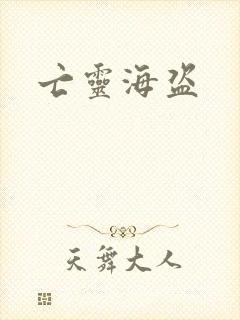 亡靈海盗
天舞大人